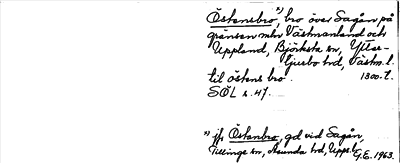 Östensbro,*) bro över Sagån på
gränsen mln Västmanland och
Uppland, Björksta sn, Yttter-
tjurbo hd, Västm. l.
til östens bro. 1300-t.
SOL s. 47.
*) jfr Östanbro, gd vid Sagån,
Tillinge sn, Åsunda hd, Upps. l.
G.E. 1963.